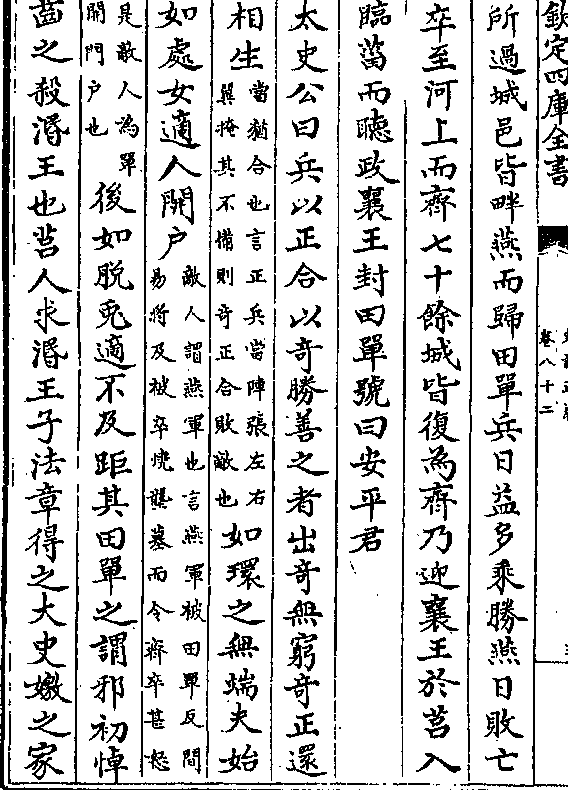 欽定四庫全書
卷八十二
所過城邑皆畔燕而歸田單兵日益多乘勝燕日敗亡
卒至河上而齊七十餘城皆復為齊乃迎襄王於莒入
臨菑而聽政襄王封田單號曰安平君
太史公曰兵以正合以奇勝善之者出奇無窮奇正還
相生當猶合也言正兵當陣張左右翼掩其不備則奇正合敗敵也如環之無端夫始
如處女適人開户敵人謂燕軍也言燕軍被田單反間易將及被卒燒壟墓而令齊卒甚怒
是敵人為單開門户也後如脱兎適不及距其田單之謂邪初悼
齒之殺湣王也莒人求湣王子法章得之大史嬓之家